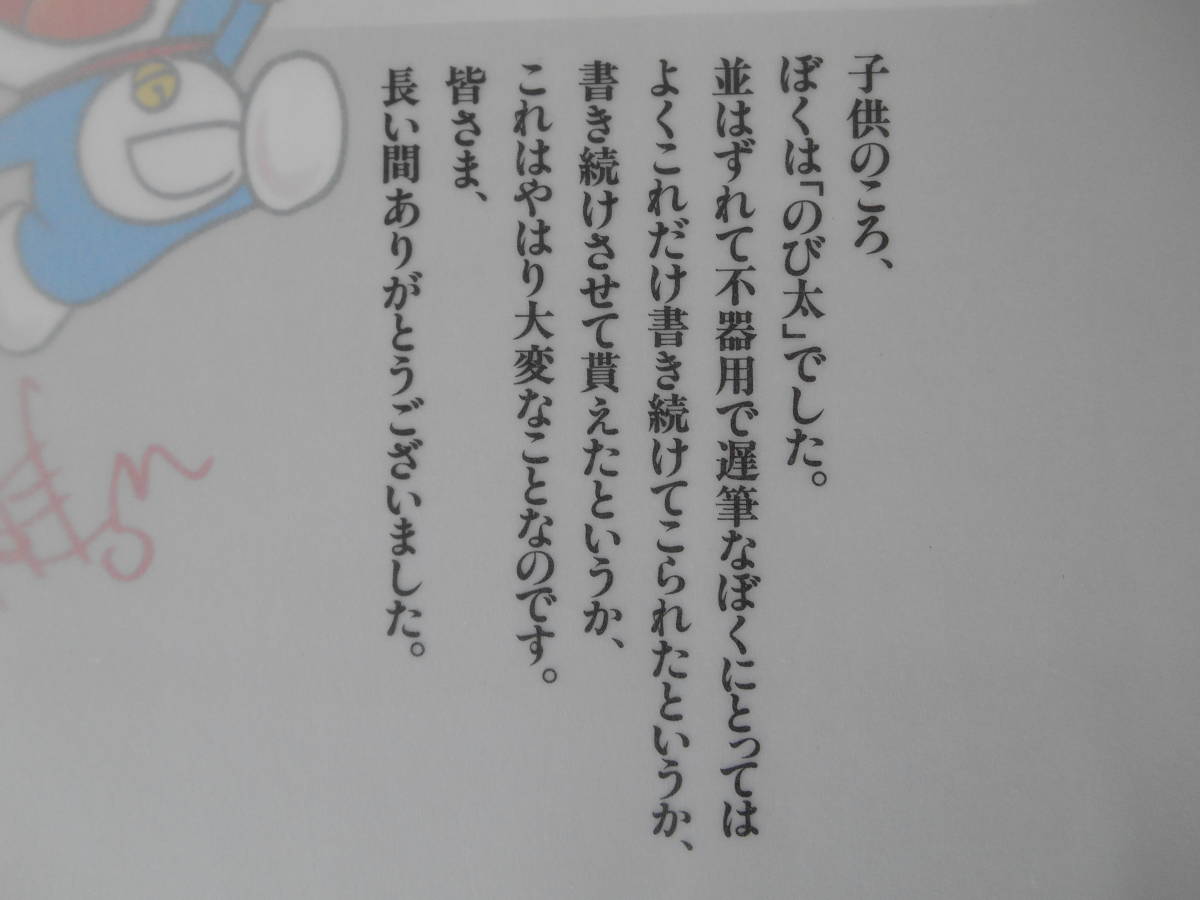 子供のころ、
ぼくは「のび太」でした。
並はずれて不器用で遅筆なぼくにとっては
よくこれだけ書き続けてこられたというか、
書き続けさせて貰えたというか、
これはやはり大変なことなのです。
皆さま、
長い間ありがとうございました。